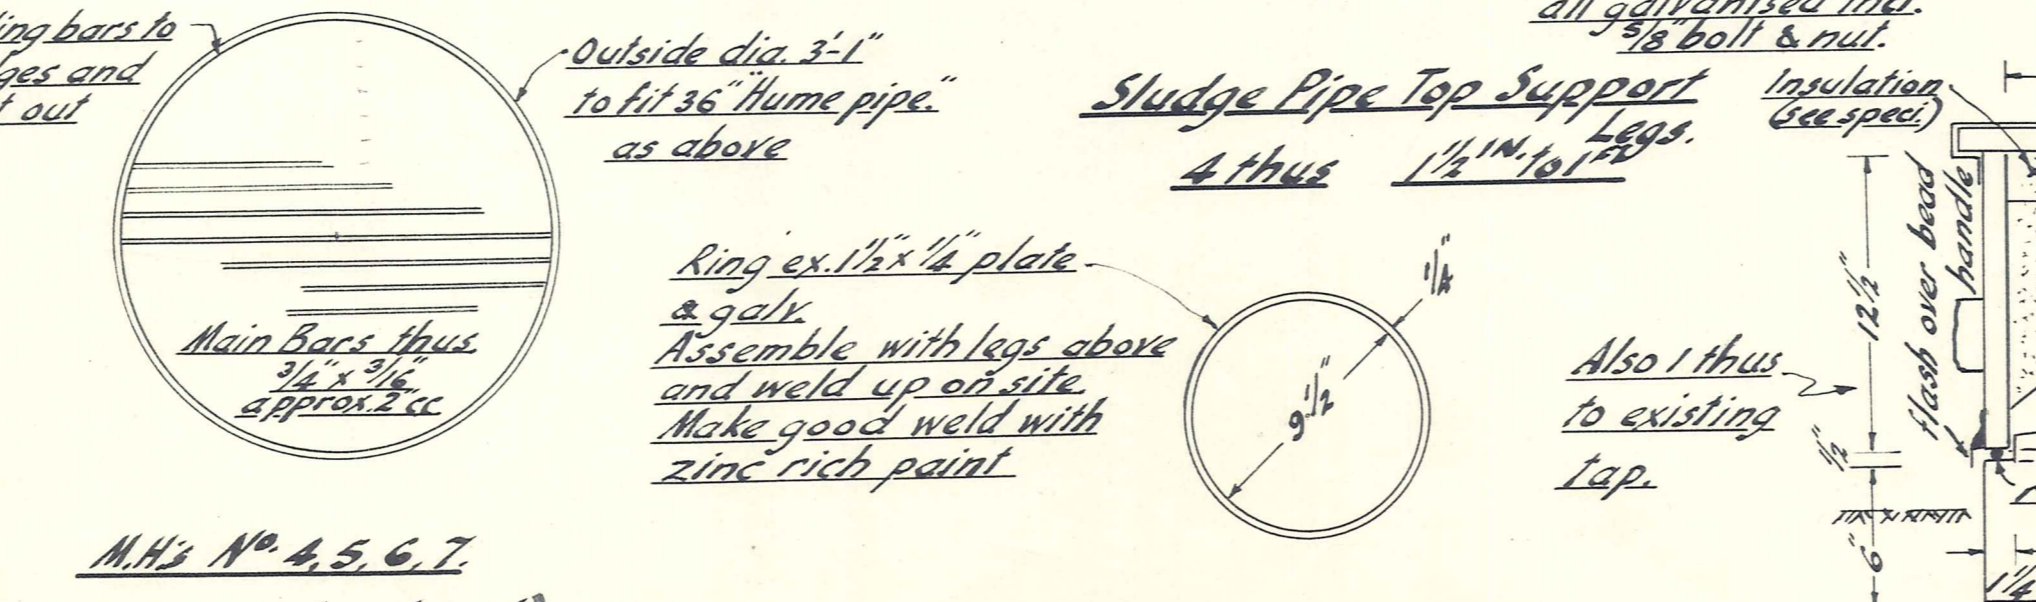 ing bars to
ges and
t out
Outside dia. 3'-1"
to fit 36" "Hume pipe."
as above
Main Bars thus.
3/4" x 3/16"
approx. 2" cc
M.H's Nº. 4, 5, 6, 7.
all galvanised incl.
5/8" bolt & nut.
Sludge Pipe Top Support
Legs.
4 thus 1½ IN. to 1 FT
Ring ex. 1½" x ¼" plate
& galv.
Assemble with legs above
and weld up on site.
Make good weld with
zinc rich paint
1/4"
9½"
Insulation
(see speci.)
Also 1 thus
to existing
tap.
12½"
½"
6"
flash over bead
handle
1¼